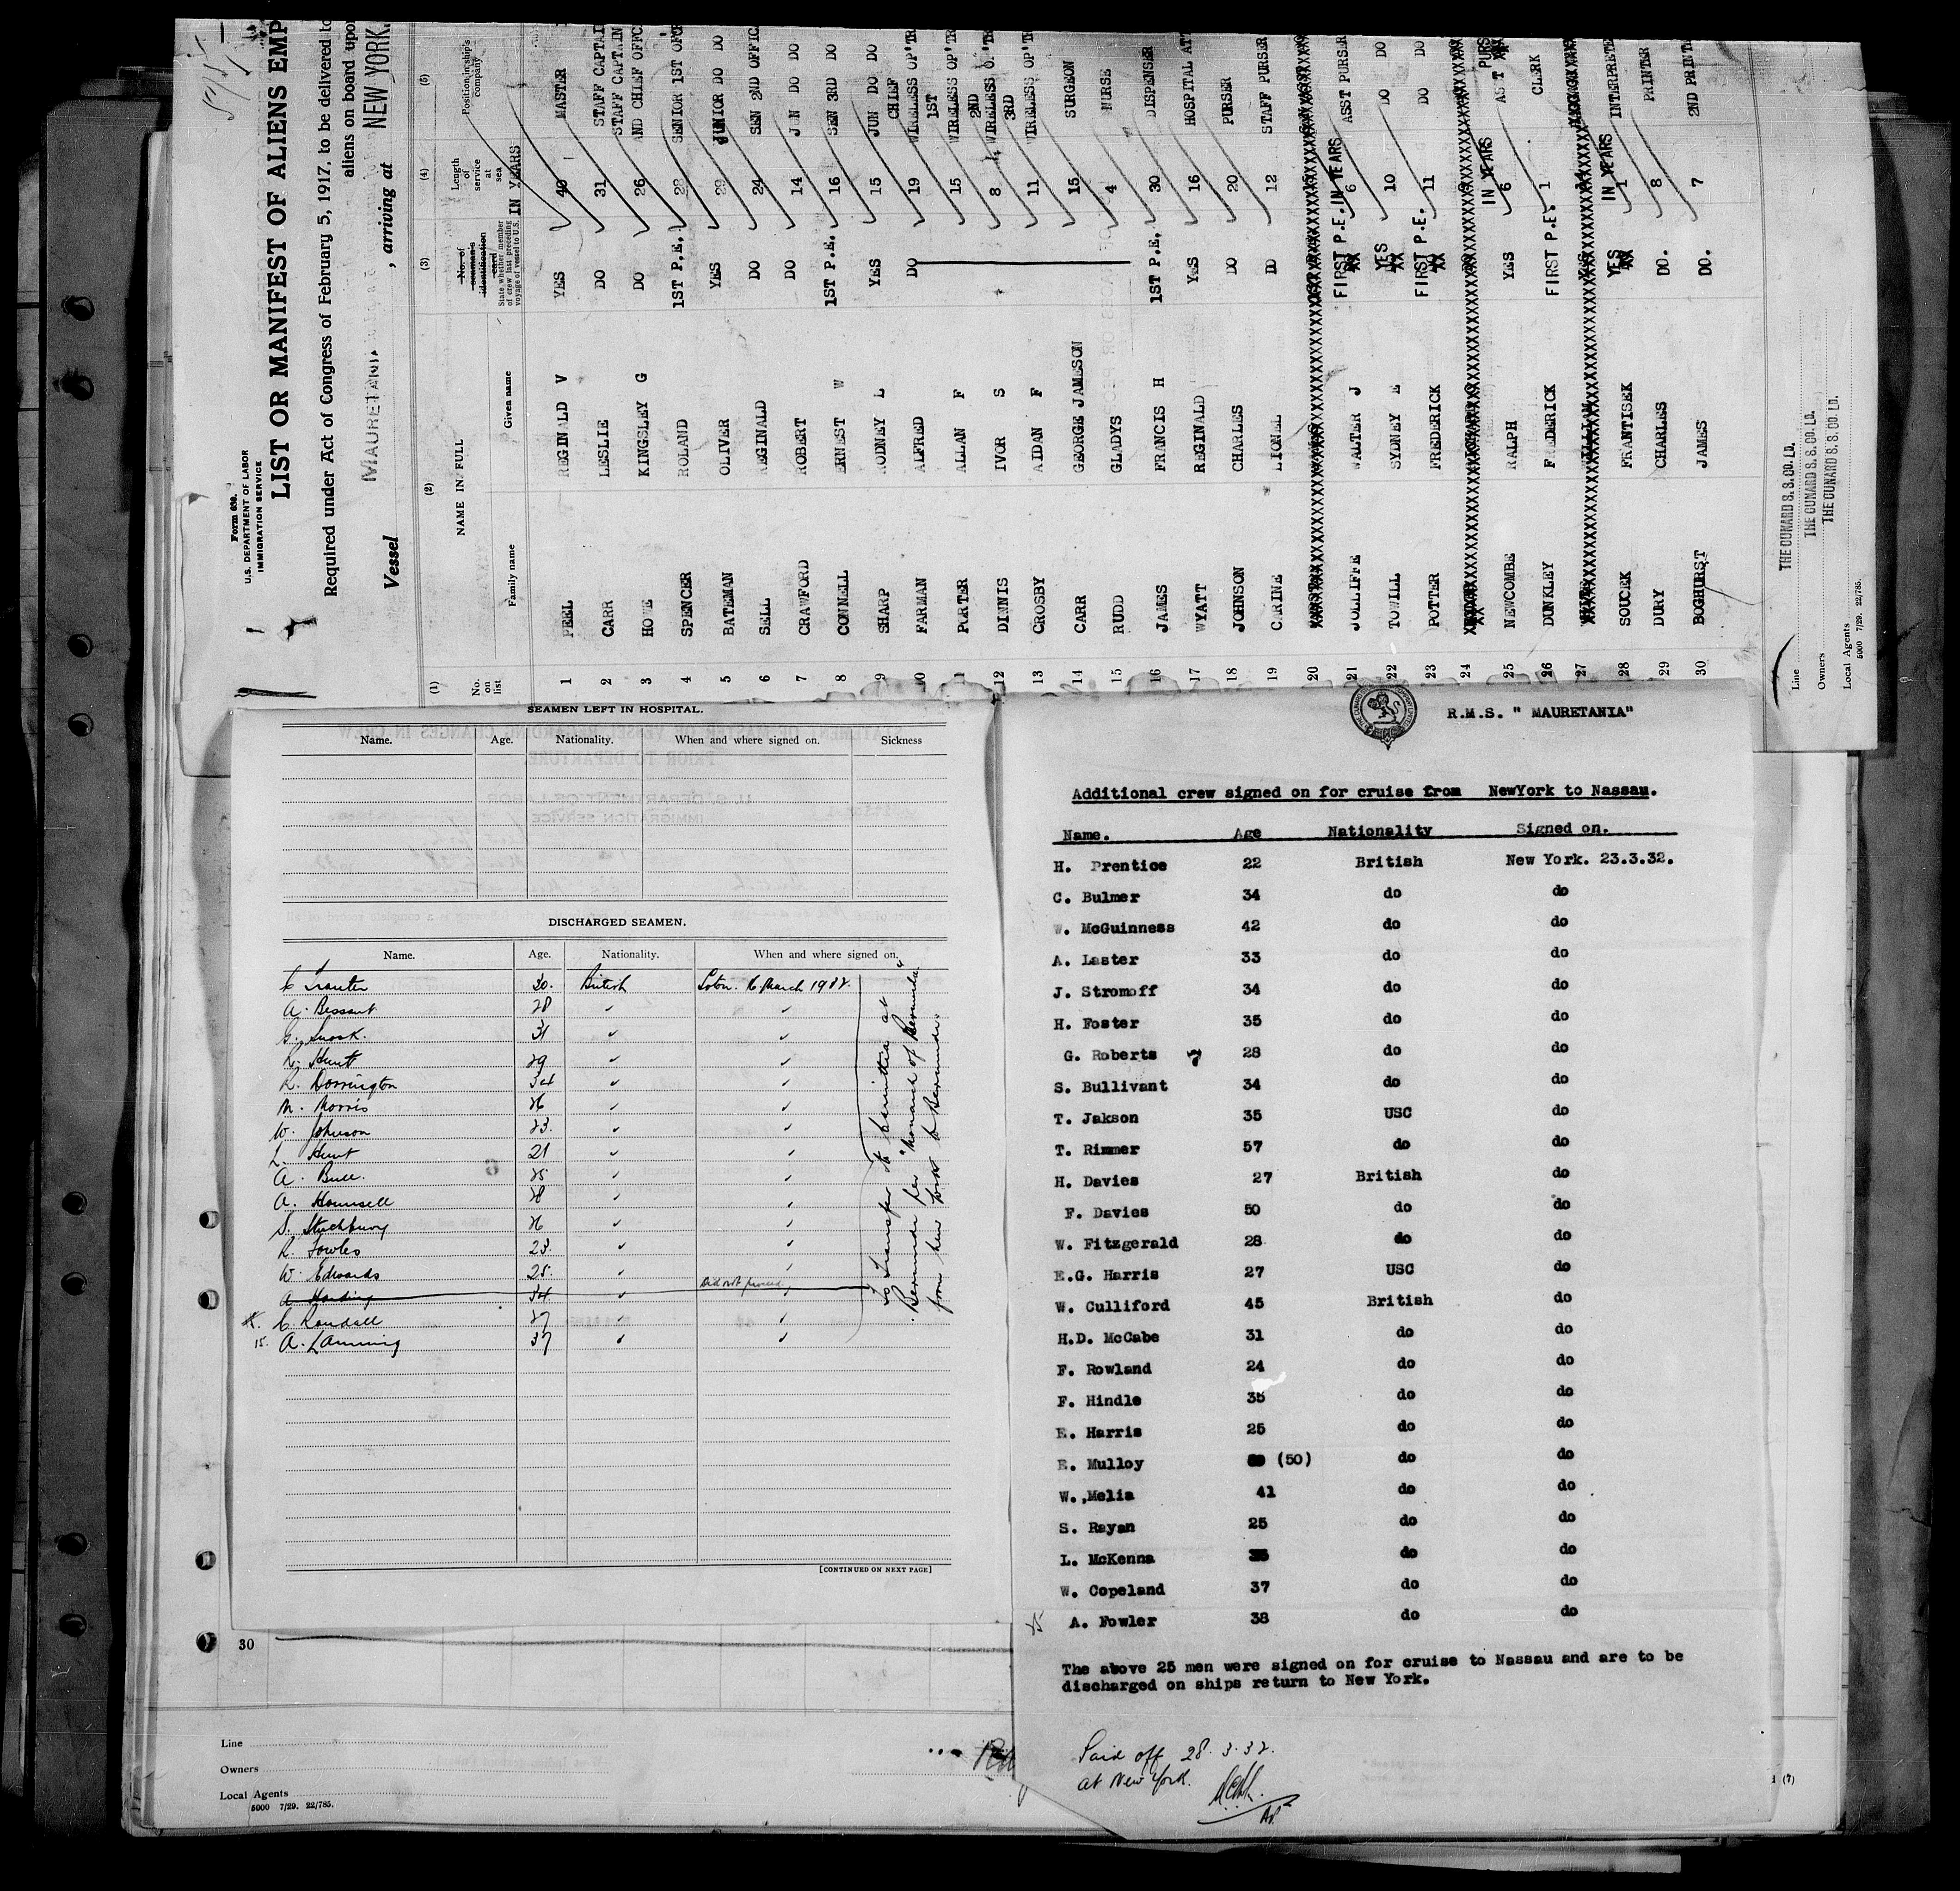 Form 680.
U.S. DEPARTMENT OF LABOR
IMMIGRATION SERVICE
LIST OR MANIFEST OF ALIENS EMP
Required under Act of Congress of February 5, 1917, to be delivered to
aliens on board upo
Vessel MAURETANIA , arriving at NEW YORK.
(1) (2) (3) (4) (5)
No. on list
NAME IN FULL
Family name Given name
No. of seaman's identification card
State whether member of crew last preceding voyage of vessel to U.S.
Length of service at sea
IN YEARS
Position in ship's company
1 PEEL REGINALD V YES 40 MASTER
2 CARR LESLIE DO 31 STAFF CAPTAIN
3 HOWE KINGSLEY G DO 26 STAFF CAPTAIN AND CHIEF OFFC
4 SPENCER ROLAND 1ST P.E. 28 SENIOR 1ST OF
5 BATEMAN OLIVER YES 29 JUNIOR DO DO
6 SELL REGINALD DO 24 SEN 2ND OFFIC
7 CRAWFORD ROBERT DO 14 JUN DO DO
8 CONNELL ERNEST W 1ST P.E. 16 SEN 3RD DO
9 SHARP RODNEY L YES 15 JUN DO DO
10 FARMAN ALFRED DO 19 CHIEF WIRELESS OP'TR
11 PORTER ALLAN F 15 1ST WIRELESS OP'TR
12 DINNIS IVOR S 8 2ND WIRELESS O.'TR
13 CROSBY AIDAN F 11 3RD WIRELESS OP'TR
14 CARR GEORGE JAMESON 15 SURGEON
15 RUDD GLADYS 4 NURSE
16 JAMES FRANCIS H 1ST P.E. 30 DISPENSER
17 WYATT REGINALD YES 16 HOSPITAL ATT
18 JOHNSON CHARLES DO 20 PURSER
19 CARINE LIONEL DO 12 STAFF PURSER
20
21 JOLLIFFE WALTER J FIRST P.E. IN YEARS 6 ASST PURSER
22 TOWILL SYDNEY E YES 10 DO DO
23 POTTER FREDERICK FIRST P.E. 11 DO DO
24
25 NEWCOMBE RALPH YES IN YEARS 6 AS'T PURS
26 DUNKLEY FREDERICK FIRST P.E. 1 CLERK
27
28 SOUCEK FRANTISEK YES IN YEARS 1 INTERPRETE
29 DURY CHARLES DO. 8 PRINTER
30 BOGHURST JAMES DO. 7 2ND PRINTE
Line THE CUNARD S. S. CO. LD.
Owners THE CUNARD S. S. CO. LD.
Local Agents THE CUNARD S. S. CO. LD.
5000 7/29. 22/785.
SEAMEN LEFT IN HOSPITAL.
Name. Age. Nationality. When and where signed on. Sickness
DISCHARGED SEAMEN.
Name. Age. Nationality. When and where signed on.
30. British Soton. 16 March 1932.
A. Bessant 28
31
R. Hunt 29
R. Dorrington 34
M. Morris 26
W. Johnson 23.
L. Hunt 21
A. Bull. 25
A. Hounsell 28
S. Stuchbury 26
R. Fowles 23.
W. Edwards 25.
A Harding 34 Did not proceed
C. Randall 27
15. A. Lanning 37
To Transfer to Carinthia at
Bermuda per "Monarch of Bermuda"
from New York to Bermuda.
[CONTINUED ON NEXT PAGE]
30
Line
Owners
Local Agents
5000 7/29. 22/785.
R.M.S. " MAURETANIA"
Additional crew signed on for cruise from NewYork to Nassau.
Name. Age Nationality Signed on.
H. Prentice 22 British New York. 23.3.32.
C. Bulmer 34 do do
W. McGuinness 42 do do
A. Laster 33 do do
J. Stromoff 34 do do
H. Foster 35 do do
G. Roberts 28 do do
S. Bullivant 34 do do
T. Jakson 35 USC do
T. Rimmer 57 do do
H. Davies 27 British do
F. Davies 50 do do
W. Fitzgerald 28 do do
E.G. Harris 27 USC do
W. Culliford 45 British do
H.D. McCabe 31 do do
F. Rowland 24 do do
F. Hindle 35 do do
E. Harris 25 do do
E. Mulloy (50) do do
W. ,Melia 41 do do
S. Rayan 25 do do
L. McKenna do do
W. Copeland 37 do do
A. Fowler 38 do do
The above 25 men were signed on for cruise to Nassau and are to be
discharged on ships return to New York.
Paid off 28.3.32.
at New York.
(7)